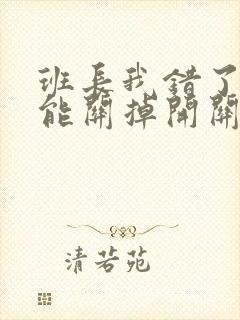 班长我错了
能關掉開關
清若苑